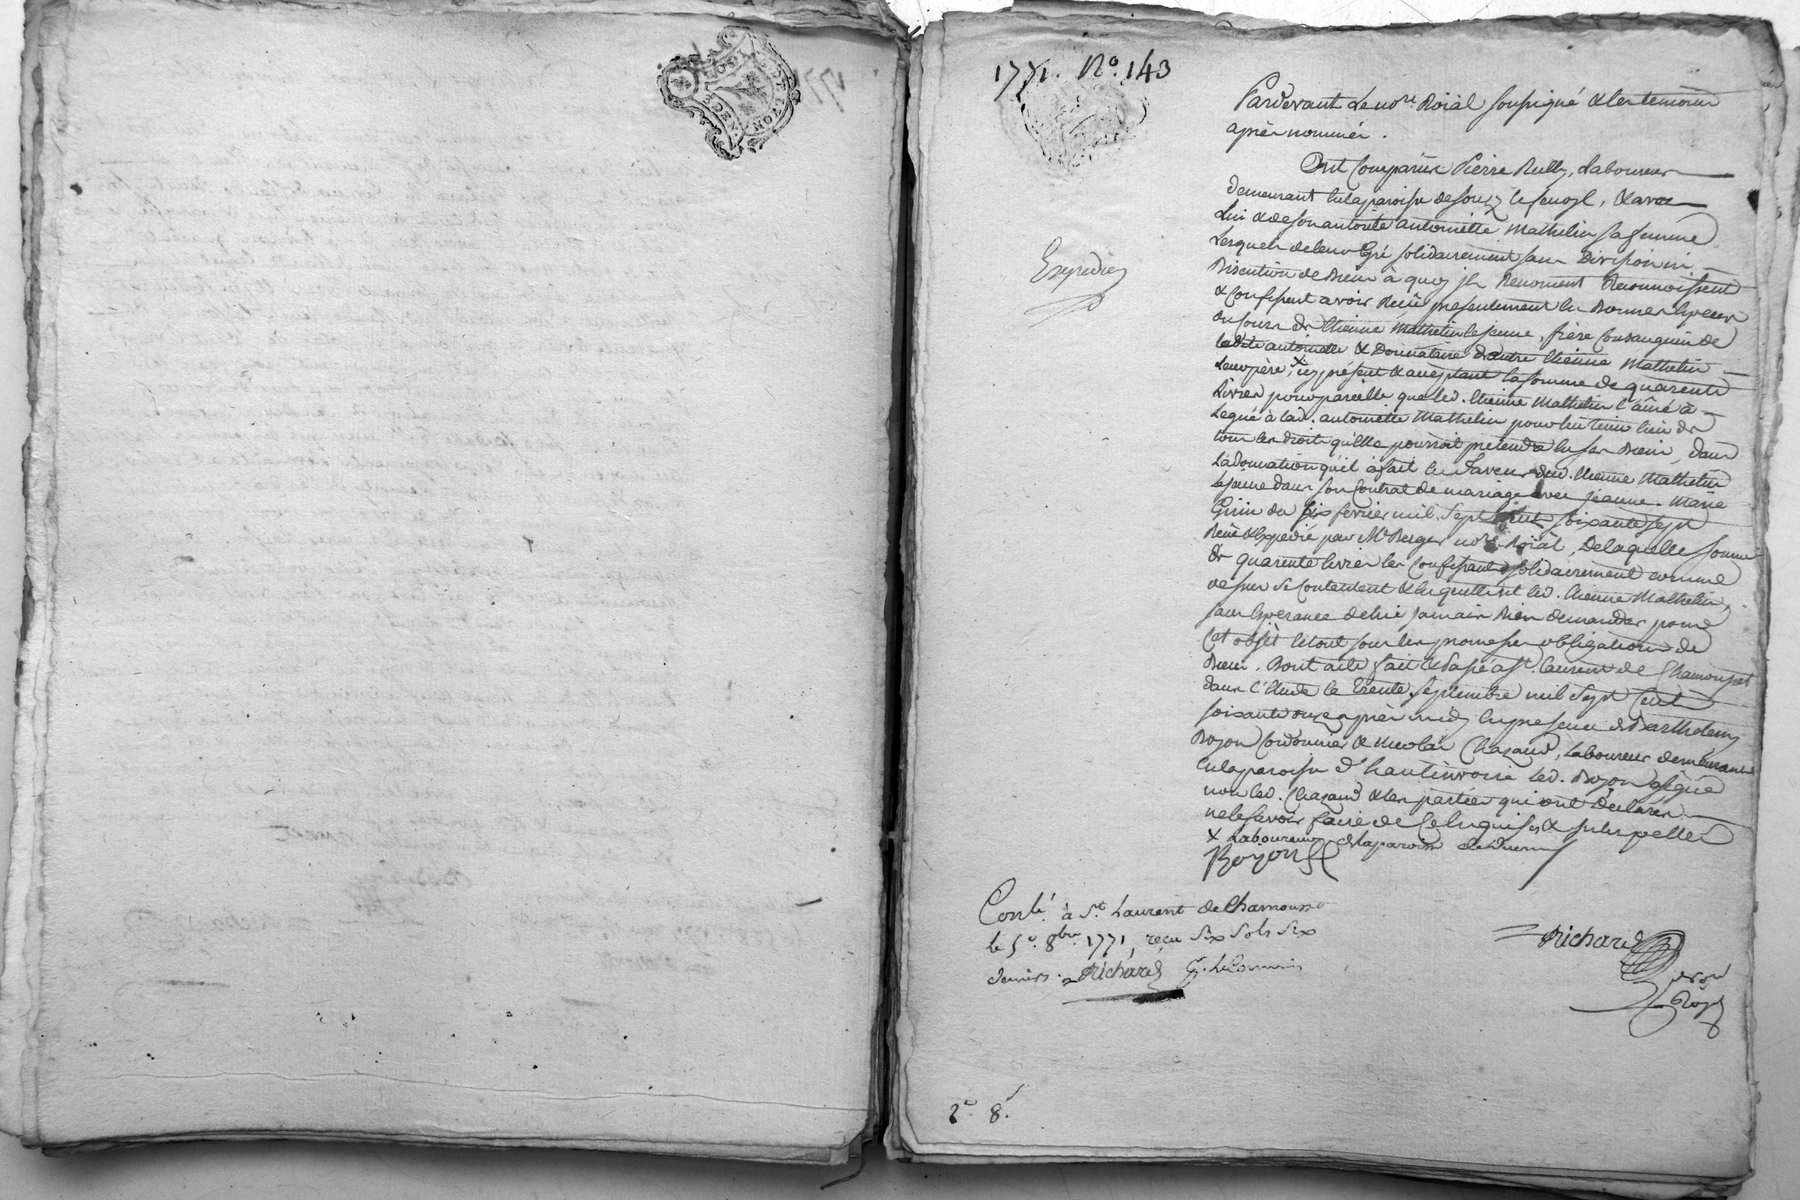 1771. No. 143
Pardevant Le nore. Roïal soussigné & les temoins
après nommés.
Ont Comparus Pierre Rully, Laboureur
demeurant en la paroisse de Souzy , & avec
Lui & de son autorité antoinette Mathelin sa femme
Lesquels de leur Gré solidairement sans Division ni
Discution de Biens à quoy ils Renoncent Reconnoissent
& Confessent avoir Reçû presentement en Bonnes Especes
du Cours de Etienne Mathelin le jeune, frère Consanguin de
ladite antoinette & Donnataire d'autre Etienne Mathelin
Leur père, x icy présent & acceptant la somme de quarente
Livres pour pareille que led. Etienne Mathelin l'aîné à
Legué à lad. antoinette Mathelin pour lui tenir lieu de
tous les droits qu'elle pourroit pretendre en ses Biens, dans
La donnation qu'il à fait en faveur dud. Etienne Mathelin
le jeune dans son Contrat de mariage avec jeanne Marie
du six fevrier mil Sept Cent soixante sept
Reçû & Expedié par Me. Berger nore Roïal, De laquelle somme
de quarente livres les Confessants solidairement comme
dessus se Contentent & en quittent led. Etienne Mathelin,
sans Esperance de lui jamais Rien demander pour
Cet objet le tout sous les promesses obligations de
Biens. Dont acte fait & Passé à St. Laurent de Chamousset
dans l'Etude le Trente Septembre mil Sept Cent
soixante onze après midy en presence de Barthelemy
Boyon Cordonnier & Nicolas Chazaud, Laboureur demeurants
en la paroisse d'hauterivoire led. Boyon a signé
non led. Chazaud & les parties qui ont Déclaré
ne le savoir faire de Ce Enquis & interpellés
x Laboureur de la paroisse de
Boyon
Expedié
Conlé. à St. Laurent de Chamousset
le 5e. 8bre. 1771, reçu Six Sols Six
deniers. Richard
Richard
2e. 8.